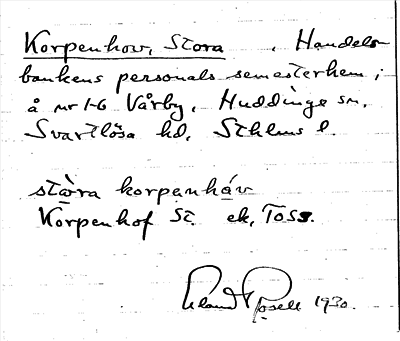 Korpenhov, Stora , Handels-
bankens personals semesterhem ;
å nr 1-6 Vårby, Huddinge sn,
Svartlösa hd, Sthlms l.
stòra korpenháv
Korpenhof St. ek, Toss.
1930.